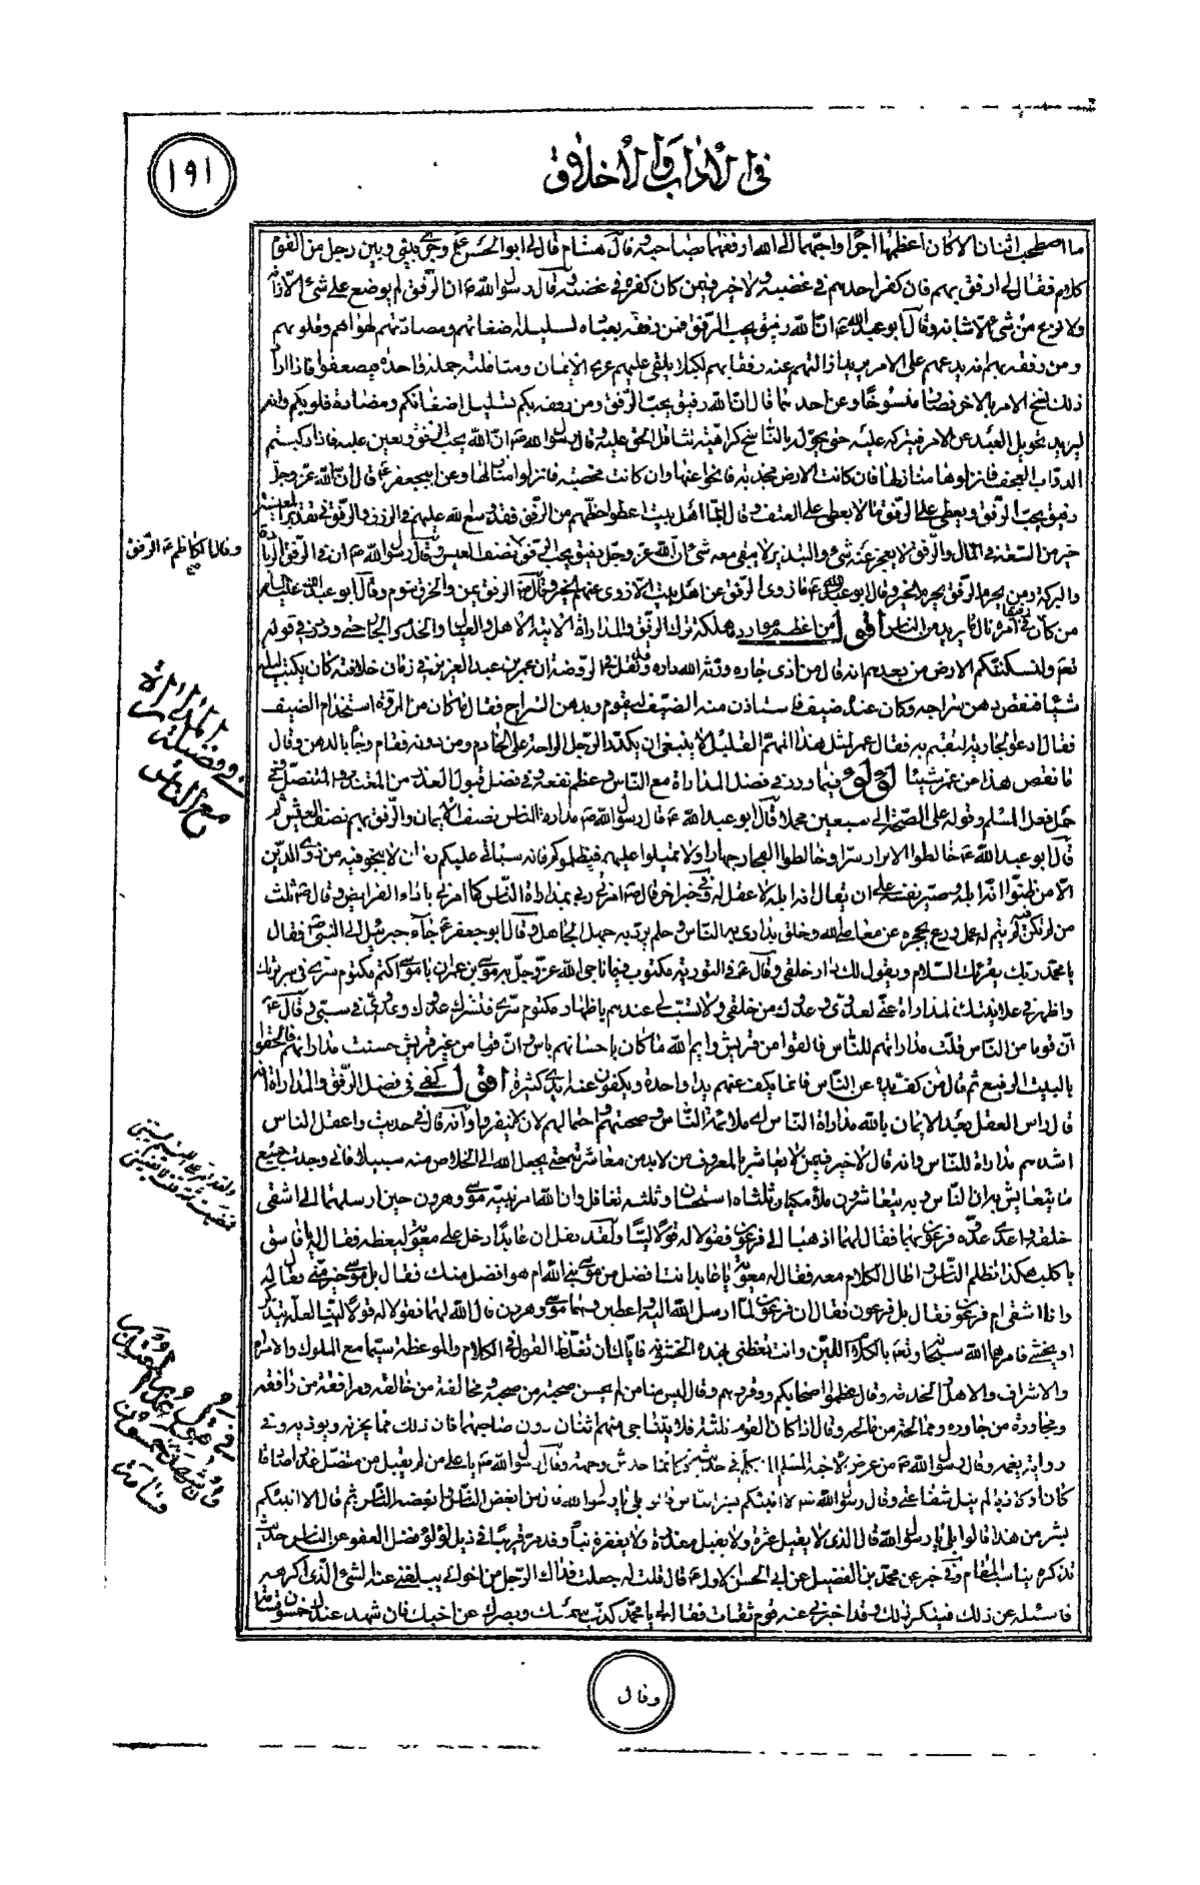 في الاداب والاخلاق
١٩١
ما اصطحب اثنان الا كان اعظمهما اجرا واحبهما الى الله ارفقهما بصاحبه وقال هشام قال لي ابو الحسن ع وجرى بيني وبين رجل من القوم
كلام فقال لي ارفق بهم فان كفر احدهم في غضبه ولا خير فيمن كان كفره في غضبه وقال رسول الله ص ان الرفق لم يوضع على شئ الا زانه
ولا نزع من شئ الا شانه وقال ابو عبد الله ع ان الله رفيق يحب الرفق فمن رفقه بعباده تسليله اضغانهم ومضادتهم لهواهم وقلوبهم
ومن رفقه بهم انه يدعهم على الامر يريد ازالتهم عنه رفقا بهم لكيلا يلقى عليهم عرى الايمان ومثاقلته جملة واحدة فيضعفوا فاذا اراد
ذلك نسخ الامر بالاخر فصار منسوخا وعن احدهما قال ان الله رفيق يحب الرفق ومن رفقه بكم تسليل اضغانكم ومضادة قلوبكم وانه
ليريد تحويل العبد عن الامر فيتركه عليه حتى يحوله بالناسخ كراهية تثاقل الحق عليه وقال رسول الله ص ان الله يحب الرفق ويعين عليه فاذا ركبتم
الدواب العجف فانزلوها منازلها فان كانت الارض مجدبة فانجوا عنها وان كانت مخصبة فانزلوها منازلها وعن ابيجعفر ع قال ان الله عز وجل
رفيق يحب الرفق ويعطي على الرفق ما لا يعطي على العنف وقال ايما اهل بيت اعطوا حظهم من الرفق فقد وسع الله عليهم في الرزق والرفق في تقدير المعيشة
خير من السعة في المال والرفق لا يعجز عنه شئ والتبذير لا يبقى معه شئ ان الله عز وجل رفيق يحب الرفق نصف العيش وقال رسول الله ص ان في الرفق الزيادة
والبركة ومن يحرم الرفق يحرم الخير وقال ابو عبد الله ع ما زوي الرفق عن اهل بيت الا زوي عنهم الخير وقال ص الرفق يمن والخرق شوم وقال ابو عبد الله عليه السلام
من كان رفيقا في امره نال ما يريد من الناس اقول من اعظم موارد هلكة ترك الرفق والمداراة الاذية الاهل والعيال
تعالى ولنسكننكم الارض من بعدهم انه قال من اذى جاره ورثه الله داره ونقل في الروضة ان عمر بن عبد العزيز في زمان خلافته كان يكتب ليلة
شيئا فنقص دهن سراجه وكان عنده ضيف فاستاذن منه الضيف ان يقوم ويدهن السراج فقال ما كان من المروة استخدام الضيف
فقال ادعو الجارية لتقيم به فقال عمر لمثل هذا المهم القليل لا ينبغي ان يكدر الرجل الواحد على الخادم ومن دونه فقام وجاء بالدهن وقال
ما نقص هذا من عمر شيئا لؤلؤ فيما ورد في فضل المداراة مع الناس وعظم نفعه وفي فضل قبول العذر من المعتذر والمتنصل وفي
حمل فعل المسلم وقوله على الصحة الى سبعين محملا قال ابو عبد الله ع قال رسول الله ص مداراة الناس نصف الايمان والرفق بهم نصف العيش ثم
قال ابو عبد الله ع خالطوا الابرار سرا وخالطوا الفجار جهارا ولا تميلوا عليهم فيظلموكم فانه سياتي عليكم زمان لا ينجو فيه من ذوي الدين
الا من ظنوا انه ابله وصبر نفسه على ان يقال انه ابله لا عقل له وفي خبر اخر قال ص امرني ربي بمداراة الناس كما امرني باداء الفرائض وقال ص ثلث
من لم تكن فيه لم يتم له عمل ورع يحجزه عن معاصي الله وخلق يداري به الناس وحلم يرد به جهل الجاهل وقال ابو جعفر ع جاء جبرئيل الى النبي ص فقال
يا محمد ربك يقرئك السلام ويقول لك دار خلقي وقال ع في التورية مكتوب فيما ناجى الله عز وجل به موسى بن عمران يا موسى اكتم مكتوم سري في سريرتك
واظهر في علانيتك المداراة عني لعدوي وعدوك من خلقي ولا تستسب لي عندهم باظهار مكتوم سري فتشرك عدوك وعدوي في سبي وقال ع
ان قوما من الناس قلت مداراتهم للناس فالقوا من قريش وايم الله ما كان باحسابهم باس وان قوما من غير قريش حسنت مداراتهم فالحقوا
بالبيت الرفيع ثم قال من كف يده عن الناس فانما يكف عنهم يدا واحدة ويكفون عنه ايدي كثيرة اقول كفى في فضل الرفق والمداراة انه
قال راس العقل بعد الايمان بالله مداراة الناس اي ملائمة الناس وحسن صحبتهم واحتمالهم لان لا ينفروا وانه قال في حديث واعقل الناس
اشدهم مداراة للناس وانه قال لا خير فيمن لا يعاشر بالمعروف من لا بد من معاشرته حتى يجعل الله الى الخلاص منه سبيلا فاني وجدت جميع
ما يتعايش به الناس وبه يتعاشرون ملأ مكيال ثلثاه استحسان وثلثه تغافل وان الله امر نبيه موسى وهرون حين ارسلهما الى اشقى
خلقه واعدى عدوه فرعون فقال لهما اذهبا الى فرعون فقولا له قولا لينا ولقد نقل ان عابدا دخل على معوية ليعظه فقال له يا فاسق
يا كلب هكذا تظلم الناس واطال الكلام معه فقال له معوية يا عابد انت افضل من موسى نبي الله ام هو افضل منك فقال بل موسى خير مني فقال له
وانا اشقى ام فرعون فقال بل فرعون فقال ان فرعون لما ارسل الله اليه واعظين هما موسى وهرون قال الله لهما فقولا له قولا لينا لعله يتذكر
او يخشى فامرهما الله سبحانه وتعالى بالكلام اللين وانت تعظني بهذه الخشونة فاياك ان تغلظ القول في الكلام والموعظة سيما مع الملوك والامراء
والاشراف والاهل وقال عظموا اصحابكم ووقروهم وقال ليس منا من لم يحسن صحبة من صحبه ومخالقة من خالقه ومرافقة من رافقه
ومجاورة من جاوره وممالحة من مالحه وقال اذا كان القوم ثلثة فلا يتناجى منهم اثنان دون صاحبهما فان ذلك مما يحزنه ويؤذيه وفي
رواية يغمه وقال رسول الله ص من عرض لاخيه المسلم المتكلم في حديثه فكانما خدش وجهه وقال رسول الله ص يا علي من لم يقبل من متنصل عذرا صادقا
كان او كاذبا لم ينل شفاعتي وقال رسول الله ص الا انبئكم بشر الناس قالوا بلى يا رسول الله قال من ابغض الناس وابغضه الناس ثم قال الا انبئكم
بشر من هذا قالوا بلى يا رسول الله قال الذي لا يقيل عثرة ولا يقبل معذرة ولا يغفر ذنبا وقد مر قريبا في ذيل لؤلؤ فضل العفو عن الناس حديث
تذكره يناسب المقام وفي خبر عن محمد بن الفضيل عن ابي الحسن الاول ع قال قلت له جعلت فداك الرجل من اخواني يبلغني عنه الشئ الذي اكرهه
فاسئله عن ذلك فينكر ذلك وقد اخبرني عنه قوم ثقات فقال لي يا محمد كذب سمعك وبصرك عن اخيك فان شهد عندك خمسون قسامة
وقال الكاظم ع الرفق
المداراة
وفضله
مع الناس
وقال